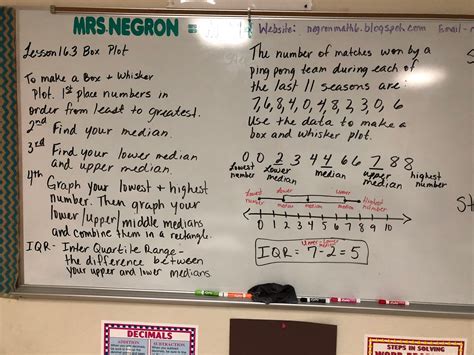 MRS. NEGRON =
Website: negronmath6.blogspot.com Email-
Lesson 16.3 Box Plot
To make a Box + Whisker
Plot. 1st place numbers in
order from least to greatest.
2nd Find your median.
3rd Find your lower median
and upper median.
4th Graph your lowest + highest
number. Then graph your
lower/upper/middle medians
and combine them in a rectangle.
IQR- Inter Quartile Range-
the difference between
your upper and lower medians
The number of matches won by a
ping pong team during each of
the last 11 seasons are:
7, 6, 8, 4, 0, 4, 8, 2, 3, 0, 6
Use the data to make a
box and whisker plot.
0 0 2 3 4 4 6 6 7 8 8
lowest number lower median median upper median highest number
Lowest number lower median median upper median Highest number
0 1 2 3 4 5 6 7 8 9 10
Upper Lower
IQR = 7-2=5
DECIMALS
ADDITION
SUBTRACTION
STEPS IN SOLVING